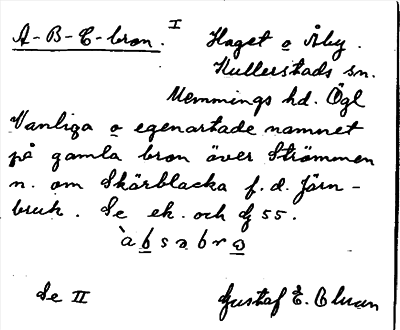 A-B-C-bron. I Haget o Åby.
Kullerstads sn.
Memmings hd. Ögl
Vanliga o egenartade namnet
på gamla bron över Strömmen
n. om Skärblacka f. d. Järn-
bruk. Se ek. och G 55.
àbsəbrɷ
Se II Gustaf E. Bluan